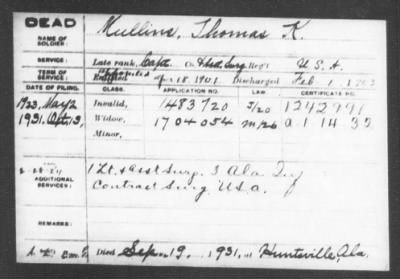 DEAD
NAME OF SOLDIER: Mullins, Thomas K.
SERVICE: Late rank, Capt. Ch Asst Surg Reg't U. S. A.
TERM OF SERVICE: Enlisted appointed Apr 18, 1901 Discharged Feb 1, 1903
DATE OF FILING. CLASS. APPLICATION NO. LAW. CERTIFICATE NO.
1923, May 2 Invalid, 1483720 5/20 1242771
1931, Oct. 13, Widow, 1704054 m/26 a 1 14 32
Minor,
ADDITIONAL SERVICES: 1 Lt. & Asst Surg. 3 Ala. Inf
Contract Surg. U.S.A.
REMARKS:
Died Sep. 19, 1931, at Huntsville, Ala.